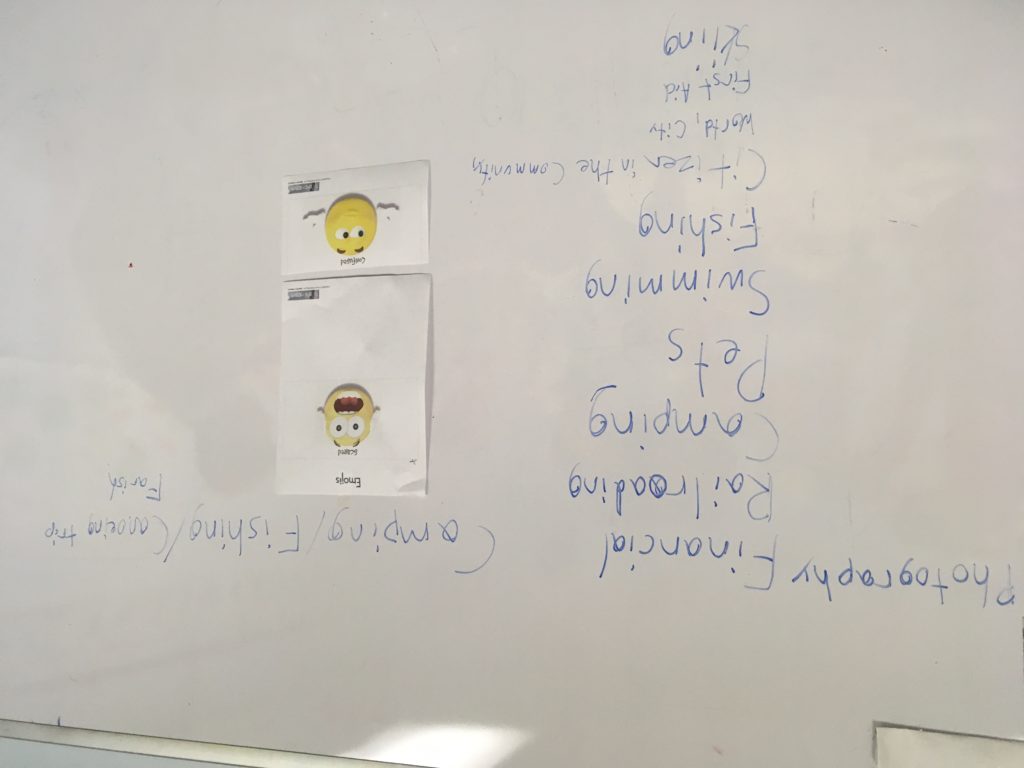 Photography Financial
Railroading
Camping
Pets
Swimming
Fishing
Citizen in the Community
World, City
First Aid
Skiing
Camping/Fishing/Canoeing trip
Farish
Emojis
scared
confused